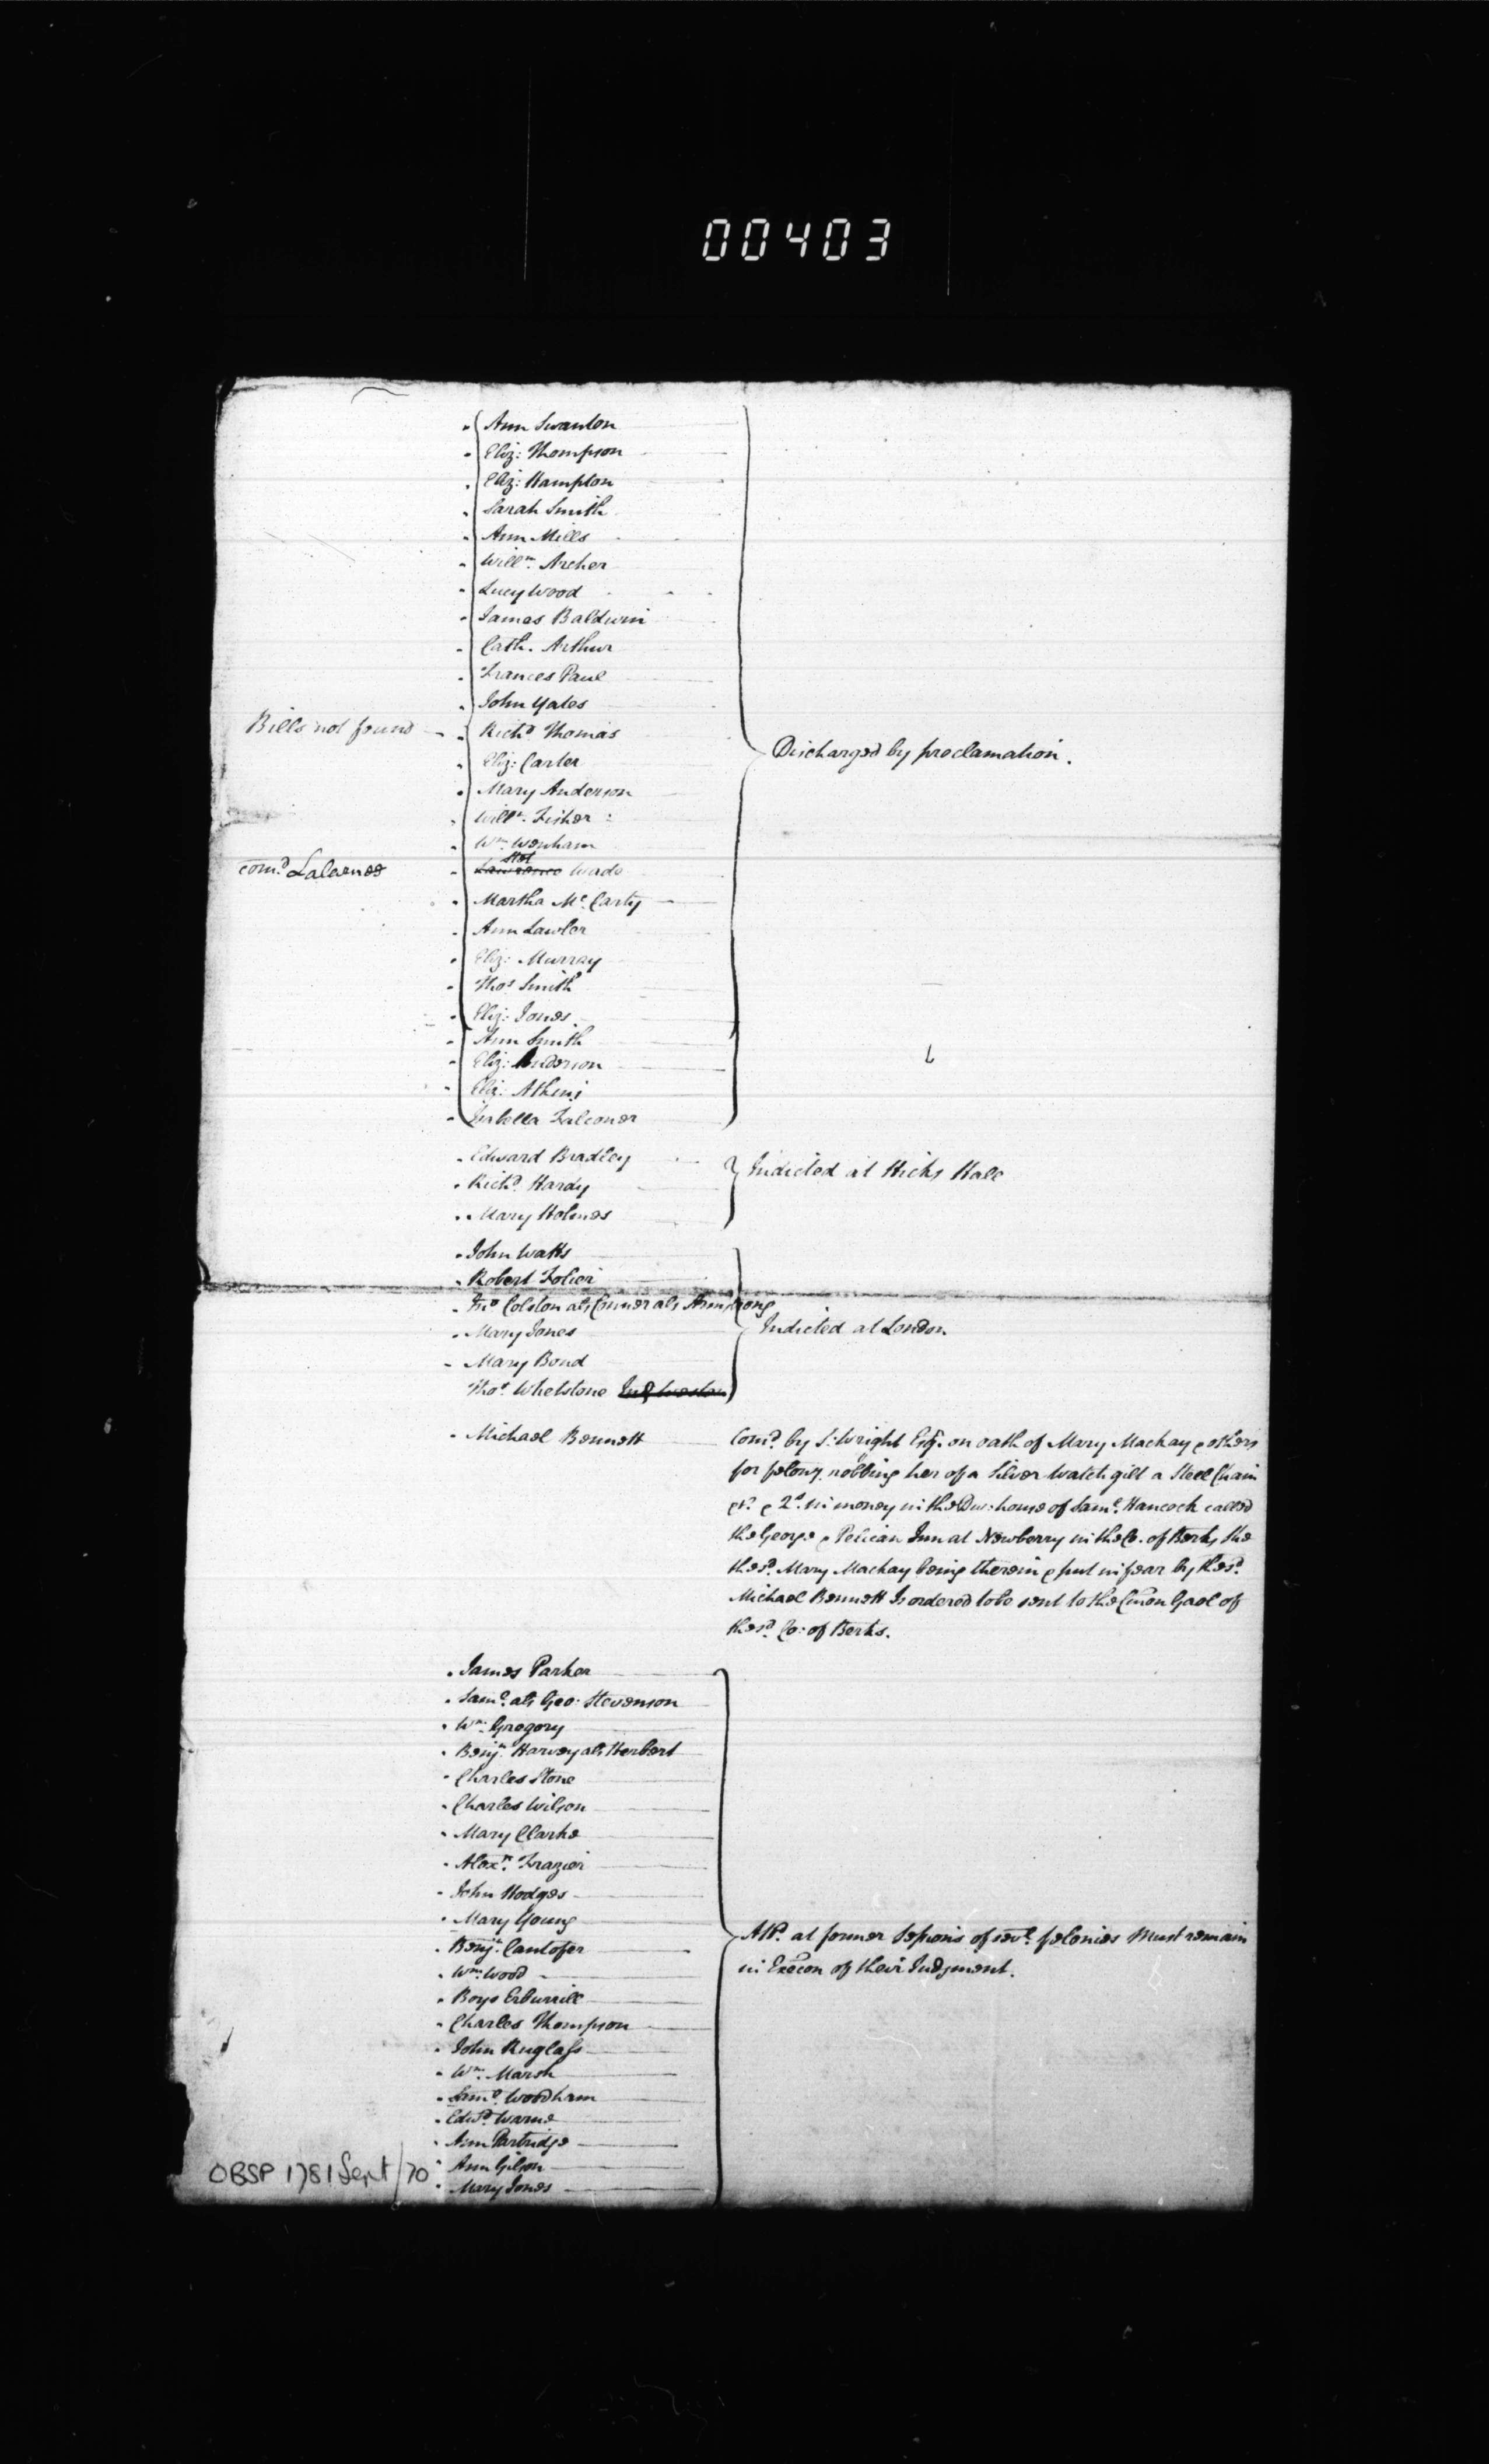 00403
Ann Swanton
Eliz: Thompson
Eliz: Hampton
Sarah Smith
Ann Mills
Willm. Archer
Lucy Wood
James Baldwin
Cath. Arthur
Frances Paul
John Yates
Bills not found Richd Thomas
Discharged by proclamation.
Eliz: Carter
Mary Anderson
Willm. Fisher
Wm. Wenham
Comd. Wade
Martha Mc. Carty
Ann Lawler
Eliz: Murray
Thos Smith
Eliz: Jones
Ann Smith
Eliz: Anderson
Eliz: Atkins
Isabella Falconer
Edward Bradley
Indicted at Hicks Hall
Richd. Hardy
Mary Holmes
John Watts
Robert
Jno Colston als Conner als Armstrong
Mary Jones Indicted at London
Mary Bond
Thos. Whetstone
Michael Bennett Comd. by S: Wright Esqr. on oath of Mary Mackay & others
for felony robbing her of a Silver Watch gilt a Steel Chain
&c. & 2s. in money in the Dw: house of Saml. Hancock called
the George & Pelican Inn at Newberry in the Co. of Berks, the
the sd. Mary Mackay being therein & put in fear by the sd.
Michael Bennett Is ordered to be sent to the Comon Gaol of
the sd. Co: of Berks.
James Parker
Saml. als Geo: Stevenson
Wm. Gregory
Benjn. Harvey als Herbert
Charles Stone
Charles Wilson
Mary Clarke
Alexr. Frazier
John Hodges
Mary Young
Att. at former Sessions of sevl. felonies Must remain
in Execon of their Judgment.
Benjn. Cantofer
Wm. Wood
Boys Erburrill
Charles Thompson
John Ruglass
Wm. Marsh
Saml. Woodham
Edwd. Warne
Ann Partridge
Ann Gilson
Mary Jones
OBSP 1781 Sept/70